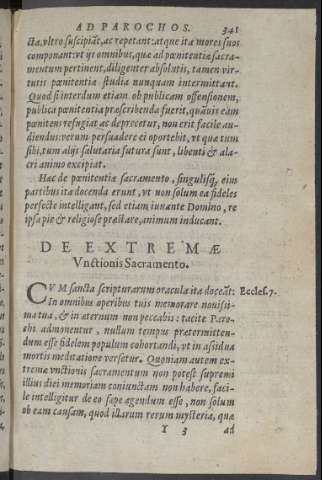 AD PAROCHOS. 341
cta, vltro suscipiāt, ac repetant: atque ita mores suos
componant: vt ijs omnibus, quæ ad pœnitentiæ sacra-
mentum pertinent, diligenter absolutis, tamen vir-
tutis pœnitentiæ studia nunquam intermittant.
Quod si interdum etiam ob publicam offensionem,
publica pœnitentia præscribenda fuerit, quāuis eam
pœnitens refugiat ac deprecetur, non erit facile au-
diendus: verum persuadere ei oportebit, vt quæ tum
sibi, tum alijs salutaria futura sunt, libenti & ala-
cri animo excipiat.
Hæc de pœnitentiæ sacramento, singulisq́, eius
partibus ita docenda erunt, vt non solum ea fideles
perfecte intelligant, sed etiam iuuante Domino, re
ipsa pie & religiose præstare, animum inducant.
DE EXTREMÆ
Vnctionis Sacramento.
CVM sancta scripturarum oracula ita doceāt: Eccles. 7.
In omnibus operibus tuis memorare nouissi-
ma tua, & in æternum non peccabis: tacite Paro-
chi admonentur, nullum tempus prætermitten-
dum esse fidelem populum cohortandi, vt in assidua
mortis meditatione versetur. Quoniam autem ex-
tremæ vnctionis sacramentum non potest supremi
illius diei memoriam coniunctam non habere, faci-
le intelligitur de eo sæpe agendum esse, non solum
ob eam causam, quod istarum rerum mysteria, quæ
Y 3 ad